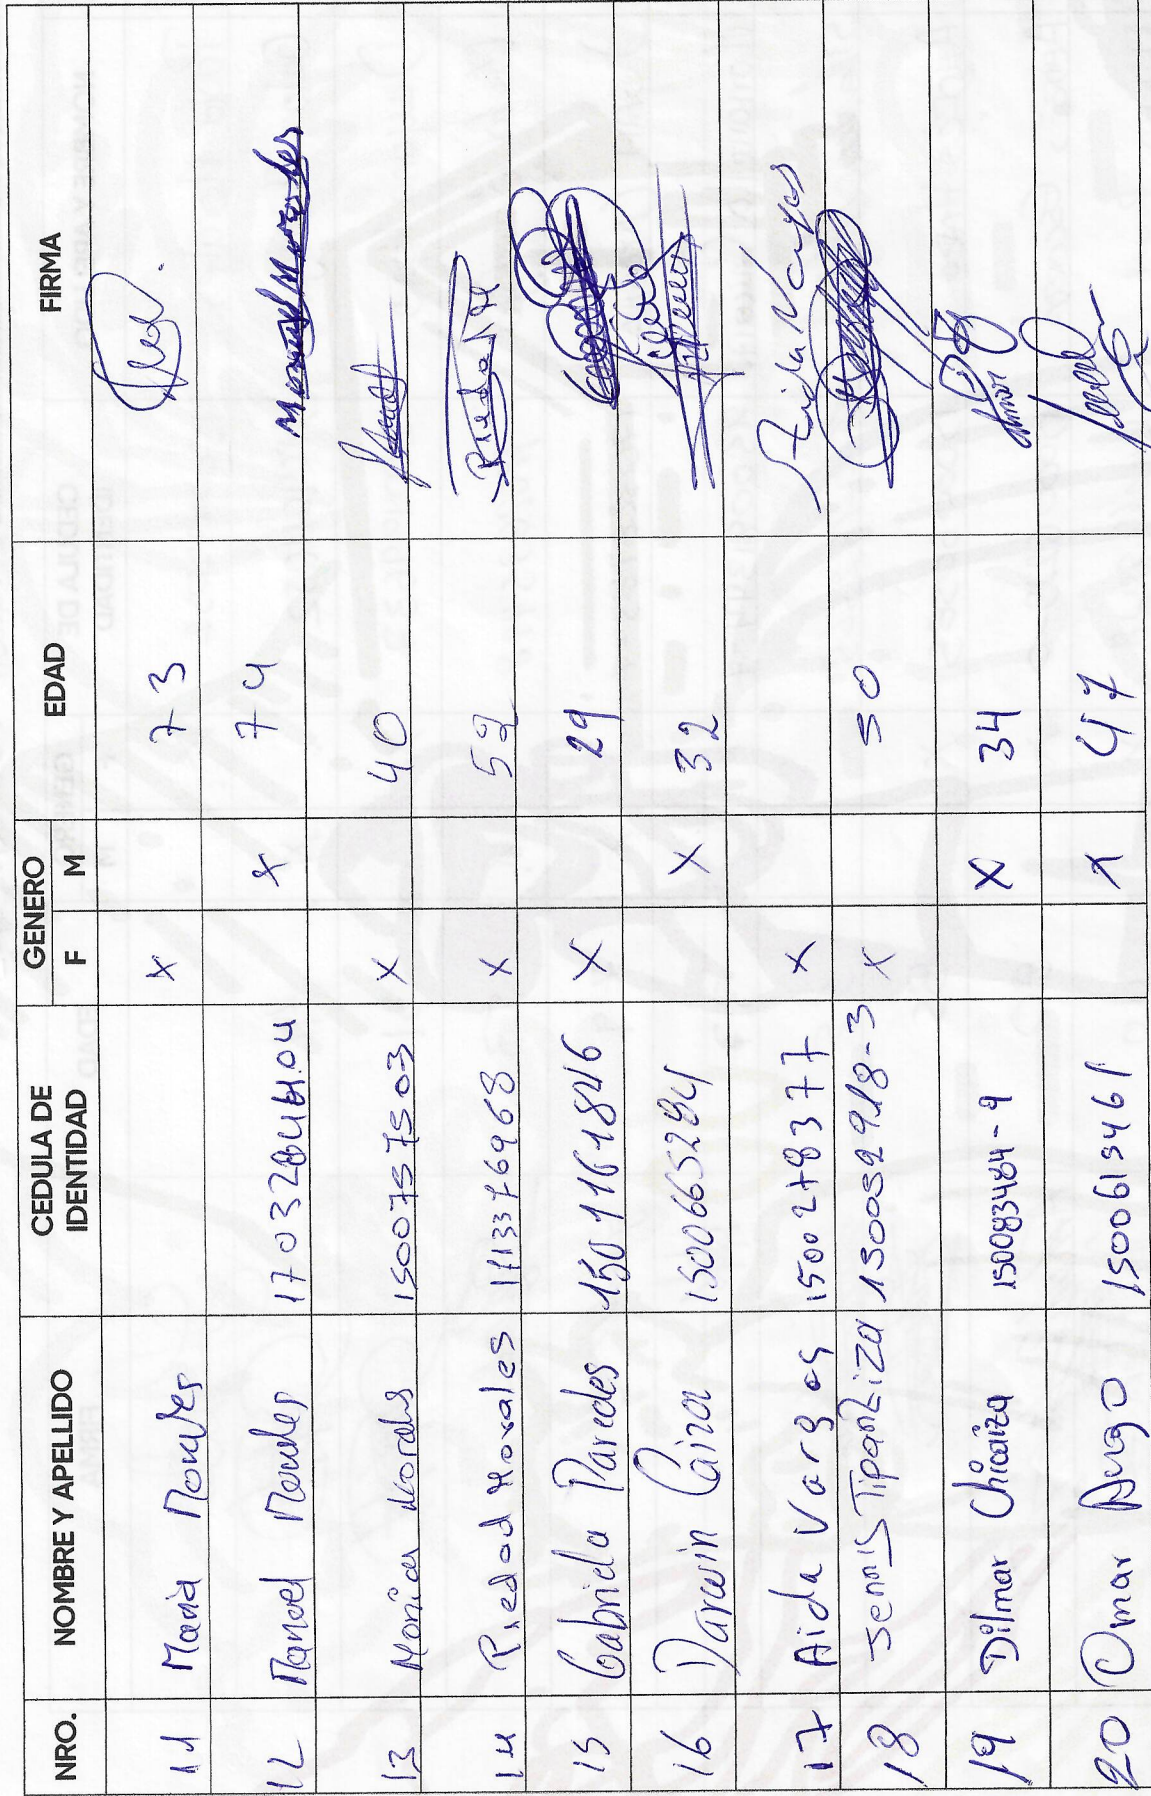 NRO. NOMBRE Y APELLIDO CEDULA DE IDENTIDAD GENERO F M EDAD FIRMA
11 Maria x 73
12 Manuel x 74 Manuel Morales
13 Monica Morales 1500757503 x 40
14 Piedad Morales 1113376968 x 52 Piedad M
15 Gabriela Paredes x 29
16 Darwin Caiza 1500665294 X 32
17 Aida Vargas 1500278377 x Aida Vargas
18 Jennis Tipanliza 150059218-3 x 50
19 Dilmar Chicaiza 150083484-9 X 34
20 Omar 1500613461 x 47